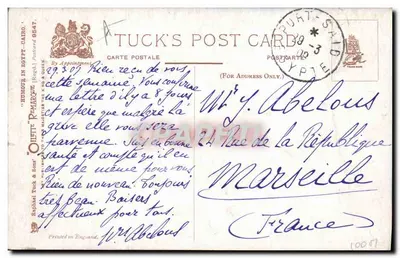 TUCK'S POST CARD
By Appointment
CARTE POSTALE
POSTCARD
(FOR ADDRESS ONLY.)
PORT-SAID
EGYPTE
29.3.09 Rien reçu de vous
cette semaine. Vous confirme
ma lettre d'il y a 8 jours
et espère que malgré la
grève elle vous sera
parvenue. Suis en bonne
santé et compte qu'il en
est de même pour vous
Rien de nouveau. Toujours
très beau. Baisers
affectueux pour tous.
Abelous
Mr J. Abelous
21 Rue de la République
Marseille
(France)
Raphael Tuck & Sons'
"OILETTE" REMARQUE
POSTCARD 8647.
"BEHIND IN EGYPT-CAIRO."